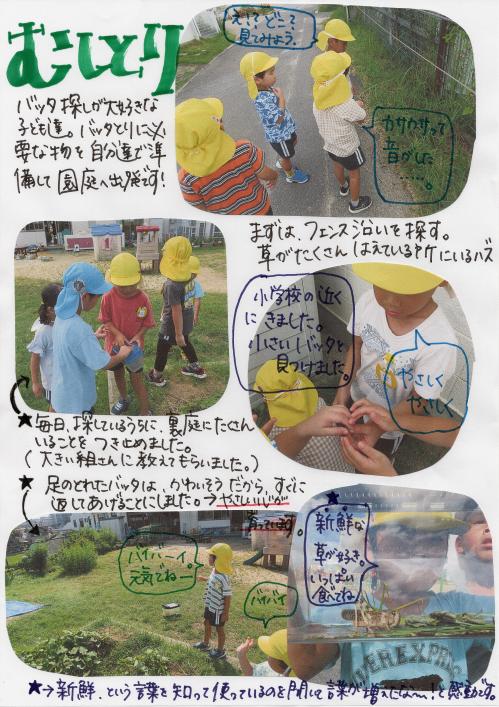 むしとり
バッタ探しが大好きな
子ども達。バッタとりに必
要な物を自分達で準
備して園庭へ出発です!
え!?どこ?
見てみよう。
カサカサって
音がした
……。
まずは、フェンス沿いを探す。
草がたくさんはえている所にいるハズ
小学校の近く
にきました。
小さいバッタを
見つけました。
やさしく
やさしく
★毎日、探しているうちに、裏庭にたくさん
いることをつき止めました。
(大きい組さんに教えてもらいました。)
★足のとれたバッタは、かわいそうだから、すぐに
逃してあげることにしました。→やさしい心が
育っています。
バイバーイ
元気でねー
バイバイ
★
新鮮な
草が好き。
いっぱい
食べてね
★→新鮮、という言葉を知って使っているのを聞いて言葉が増えたな〜!と感動です。